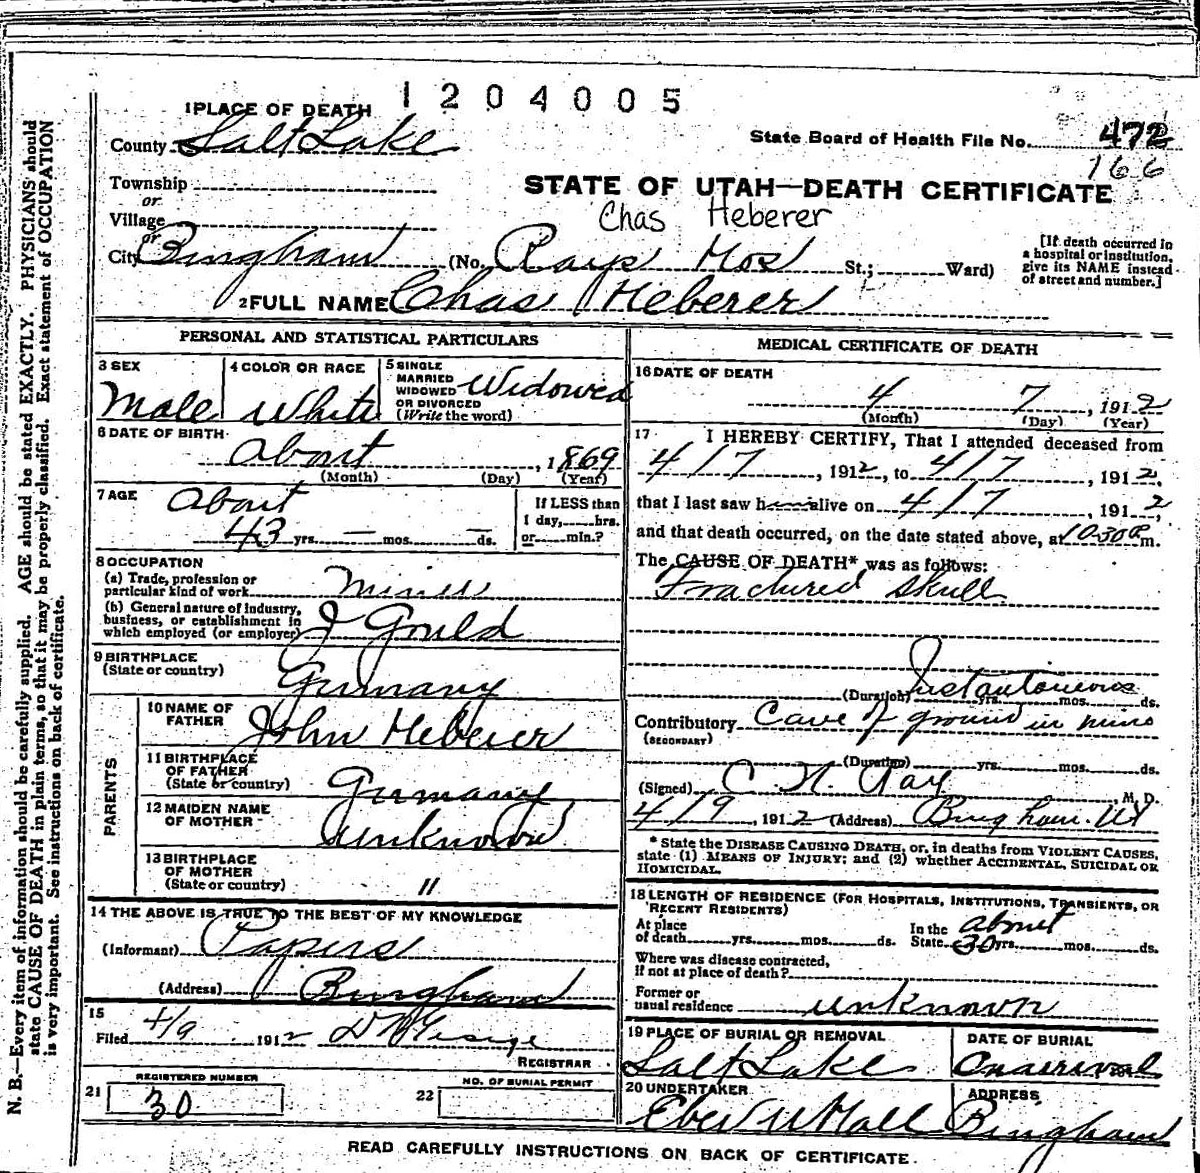 1204005
1 PLACE OF DEATH
County Salt Lake
State Board of Health File No. 472
166
Township
or
Village
or
City Bingham
STATE OF UTAH—DEATH CERTIFICATE
Chas Heberer
(No. Rays Hos St.; Ward)
[If death occurred in
a hospital or institution,
give its NAME instead
of street and number.]
2 FULL NAME Chas Heberer
PERSONAL AND STATISTICAL PARTICULARS
3 SEX
Male
4 COLOR OR RACE
White
5 SINGLE
MARRIED
WIDOWED
OR DIVORCED
(Write the word)
Widowed
6 DATE OF BIRTH
About , 1869
(Month) (Day) (Year)
7 AGE
About
43 yrs. — mos. — ds.
If LESS than
1 day, hrs.
or min.?
8 OCCUPATION
(a) Trade, profession or
particular kind of work Miner
(b) General nature of industry,
business, or establishment in
which employed (or employer) J Gould
9 BIRTHPLACE
(State or country)
Germany
PARENTS
10 NAME OF
FATHER
John Heberer
11 BIRTHPLACE
OF FATHER
(State or country)
Germany
12 MAIDEN NAME
OF MOTHER
Unknown
13 BIRTHPLACE
OF MOTHER
(State or country)
"
14 THE ABOVE IS TRUE TO THE BEST OF MY KNOWLEDGE
(Informant) Papers
(Address) Bingham
15
Filed 4/9 1912
REGISTRAR
21 REGISTERED NUMBER
30
22 NO. OF BURIAL PERMIT
MEDICAL CERTIFICATE OF DEATH
16 DATE OF DEATH
4 7 , 1912
(Month) (Day) (Year)
17 I HEREBY CERTIFY, That I attended deceased from
4/7 , 1912, to 4/7 , 1912,
that I last saw h alive on 4/7 , 1912,
and that death occurred, on the date stated above, at 10-30 P m.
The CAUSE OF DEATH* was as follows:
Fractured skull
(Duration) Instantaneous yrs. mos. ds.
Contributory Cave of ground in mine
(SECONDARY)
(Duration) yrs. mos. ds.
(Signed) C N Ray , M. D.
4/9 , 1912 (Address) Bingham. Ut
* State the DISEASE CAUSING DEATH, or, in deaths from VIOLENT CAUSES,
state (1) MEANS OF INJURY; and (2) whether ACCIDENTAL, SUICIDAL OR
HOMICIDAL.
18 LENGTH OF RESIDENCE (FOR HOSPITALS, INSTITUTIONS, TRANSIENTS, OR
RECENT RESIDENTS)
At place
of death yrs. mos. ds.
In the
State about 30 yrs. mos. ds.
Where was disease contracted,
if not at place of death?
Former or
usual residence unknown
19 PLACE OF BURIAL OR REMOVAL
Salt Lake
DATE OF BURIAL
On arrival
20 UNDERTAKER
Eber W Hall
ADDRESS
Bingham
READ CAREFULLY INSTRUCTIONS ON BACK OF CERTIFICATE.
N. B.—Every item of information should be carefully supplied. AGE should be stated EXACTLY. PHYSICIANS should
state CAUSE OF DEATH in plain terms, so that it may be properly classified. Exact statement of OCCUPATION
is very important. See instructions on back of certificate.